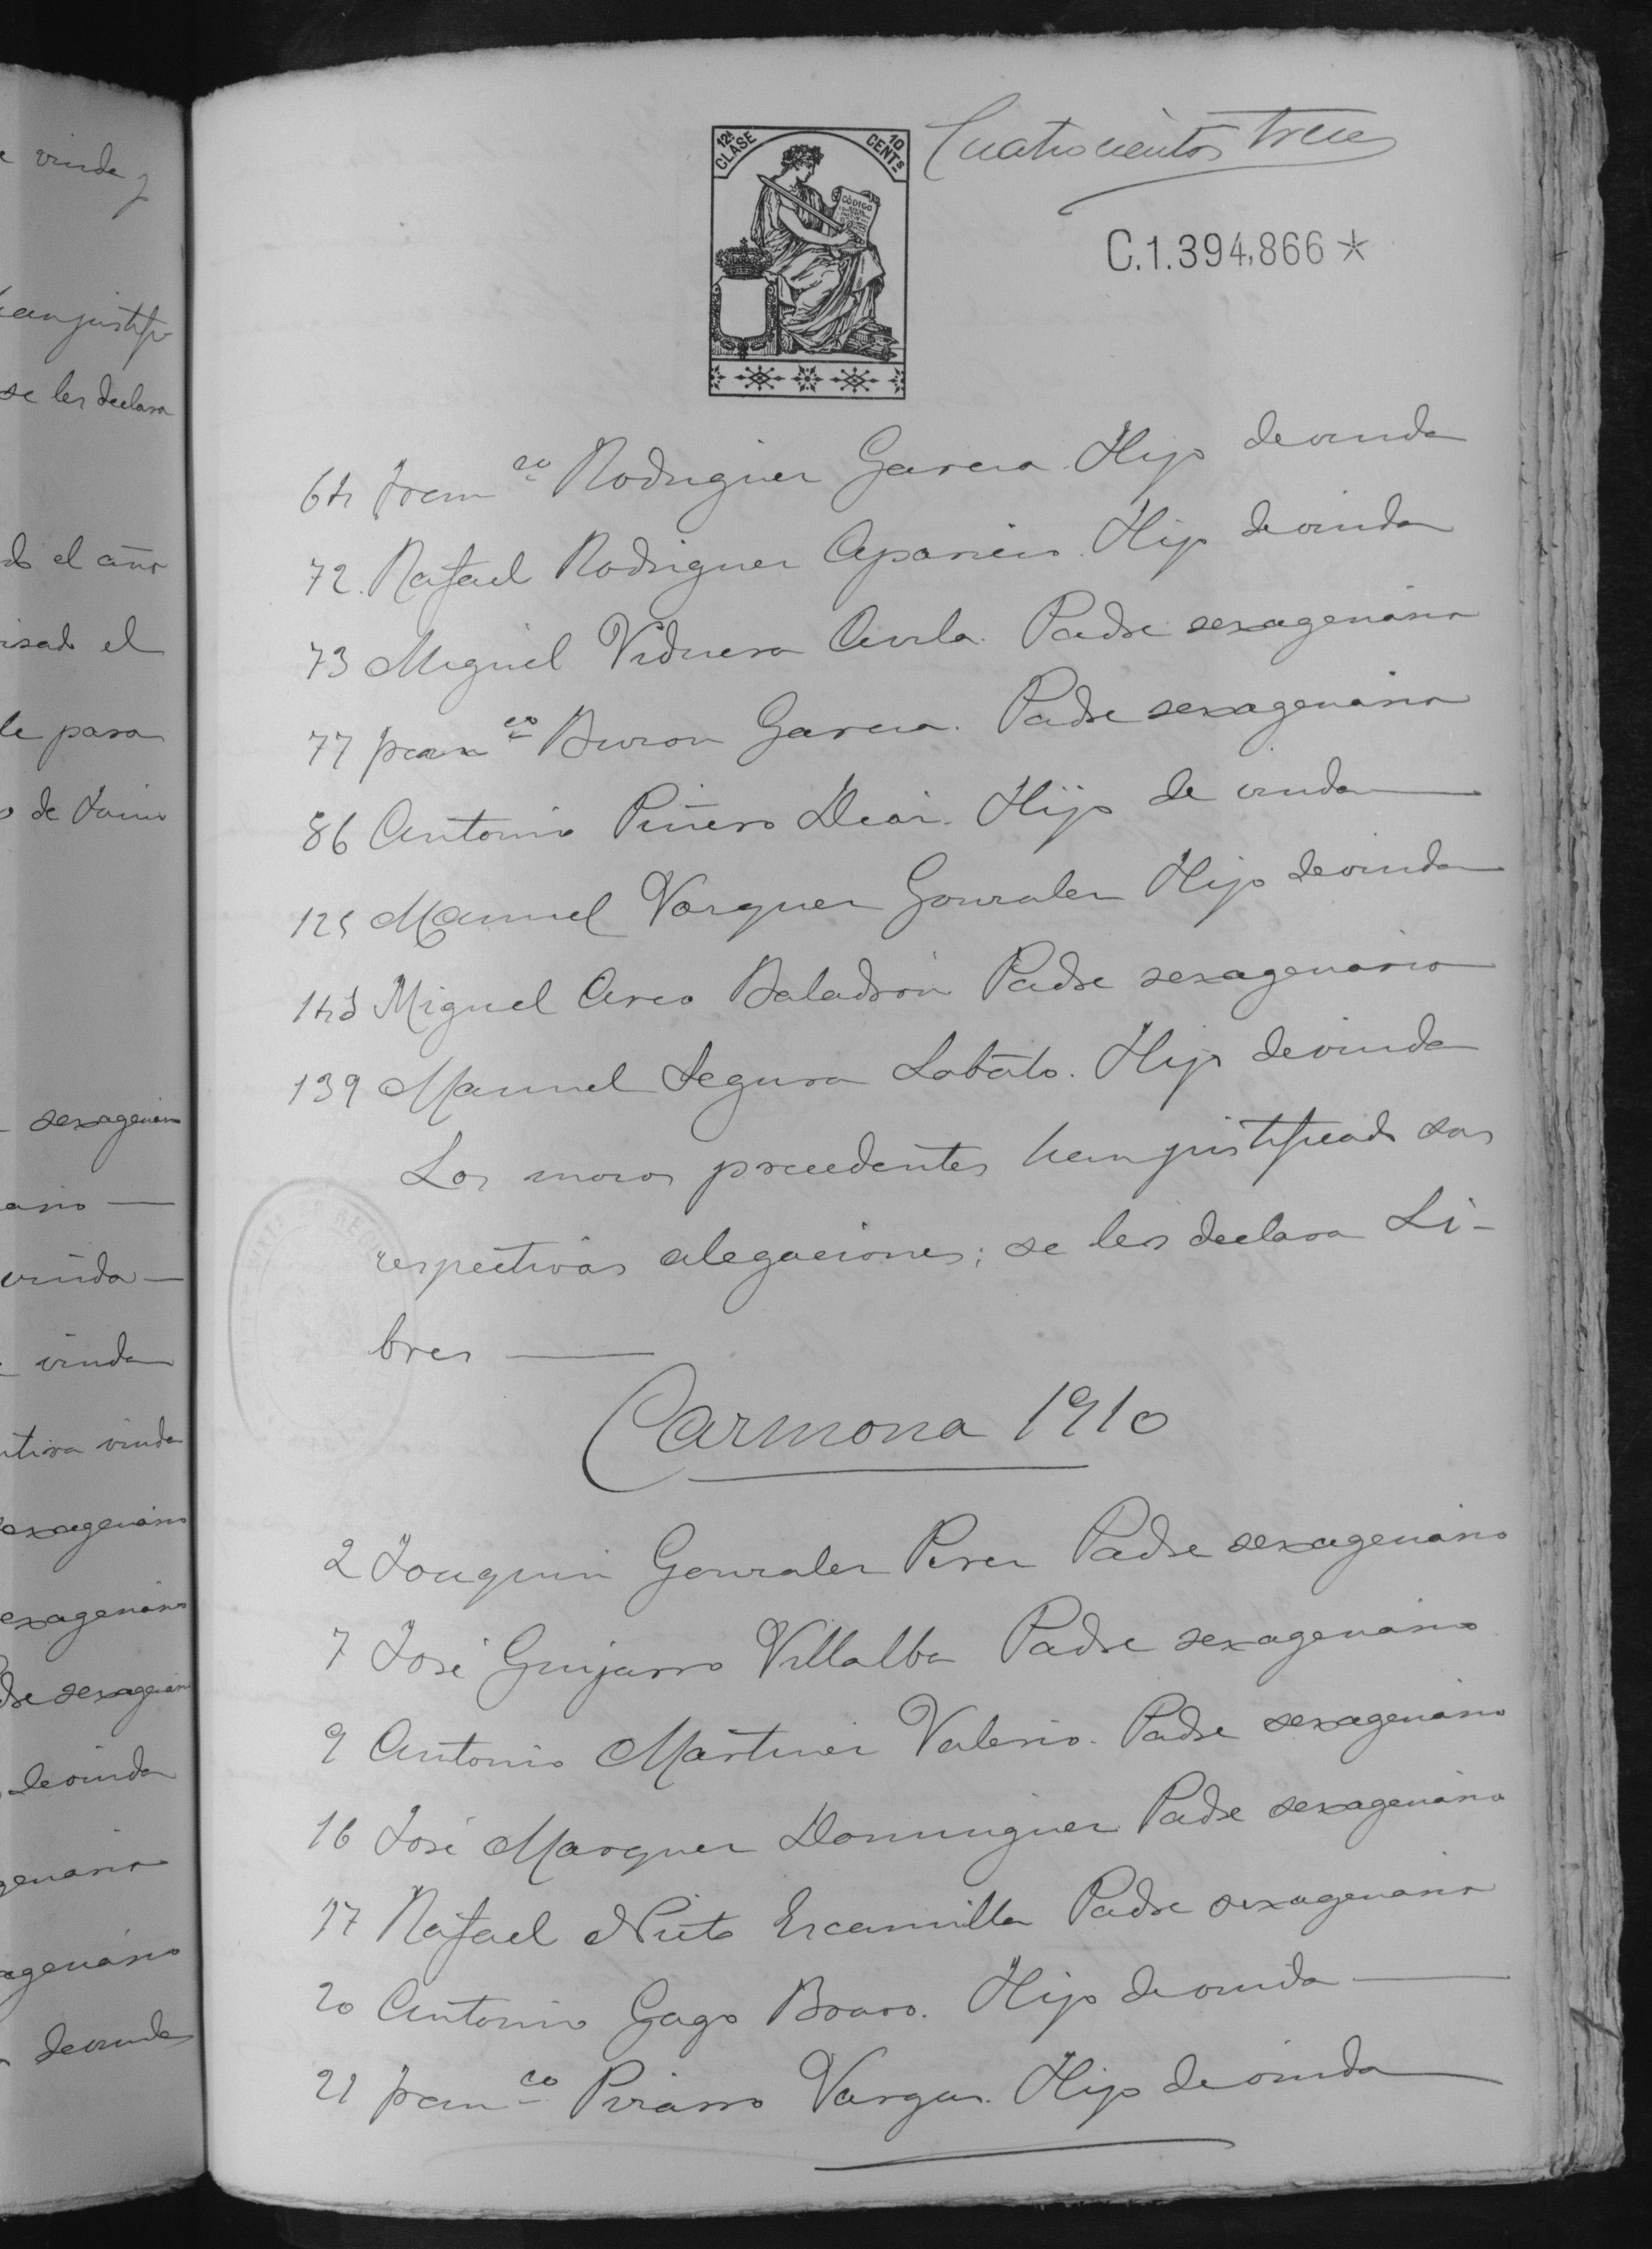 e viuda y
han justifi-
se les declara
do el año
visado el
le para
o de Juicio
sexagenario
ario —
viuda —
viuda
viuda
sexagenario
sexagenario
Padre sexagenario
de viuda
genario
agenario
de viuda
12ª CLASE
10 CENTs
CÓDIGO
Cuatrocientos trece
C.1.394,866 *
64 Franco Rodriguez Garcia Hijo de viuda
72. Rafael Rodriguez Aparicio. Hijo de viuda
73 Miguel Viduera Avila. Padre sexagenario
77 Franco Buron Garcia. Padre sexagenario
86 Antonio Piñero Diaz. Hijo de viuda —
125 Manuel Vazquez Gonzalez Hijo de viuda
143 Miguel Arco Baladrón Padre sexagenario
139 Manuel Segura Lobato. Hijo de viuda
Los mozos precedentes han justificado sus
respectivas alegaciones; se les declara Li-
bres —
Carmona 1910
2 Joaquin Gonzalez Perez Padre sexagenario
7 José Guijarro Villalba Padre sexagenario
9 Antonio Martinez Valerio. Padre sexagenario
16 José Marquez Dominguez Padre sexagenario
17 Rafael Nieto Escamilla Padre sexagenario
20 Antonio Gago Bravo. Hijo de viuda —
21 Franco Pizarro Vargas. Hijo de viuda